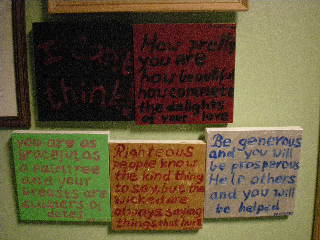 I can't
think
How pretty
you are
how beautiful
how complete
the delights
of your love
you are as
graceful as
a palm tree
and your
breasts are
clusters of
dates
Righteous
people know
the kind thing
to say, but the
wicked are
always saying
things that hurt
Be generous
and you will
be prosperous
Help others
and you will
be helped